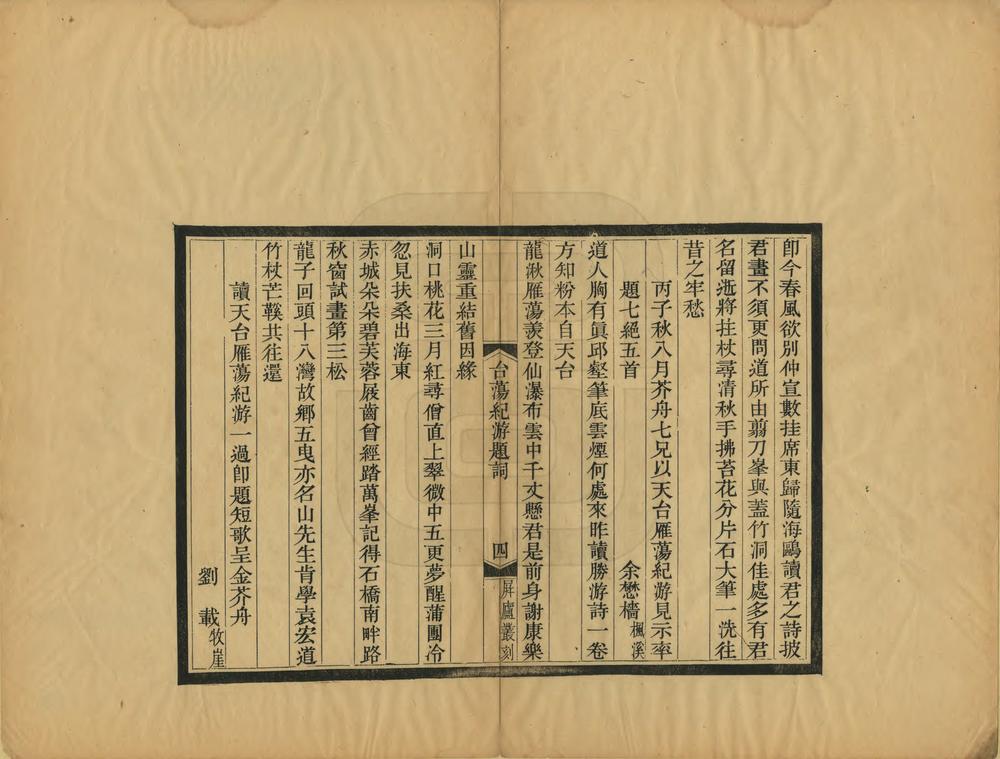 卽今春風欲別仲宣數挂席東歸隨海鷗讀君之詩披
君畫不須更問道所由翦刀峯與蓋竹洞佳處多有君
名留逝將拄杖尋清秋手拂苔花分片石大筆一洗往
昔之牢愁
丙子秋八月芥舟七兄以天台雁蕩紀游見示率
題七絕五首
余懋檣楓溪
道人胸有眞邱壑筆底雲煙何處來昨讀勝游詩一卷
方知粉本自天台
龍湫雁蕩羨登仙瀑布雲中千丈懸君是前身謝康樂
台蕩紀游題詞
四
屏廬叢刻
山靈重結舊因緣
洞口桃花三月紅尋僧直上翠微中五更夢醒蒲團冷
忽見扶桑出海東
赤城朵朵碧芙蓉屐齒曾經踏萬峯記得石橋南畔路
秋窗試畫第三松
龍子回頭十八灣故鄉五曳亦名山先生肯學袁宏道
竹杖芒鞵共往還
讀天台雁蕩紀游一過卽題短歌呈金芥舟
劉載牧崖